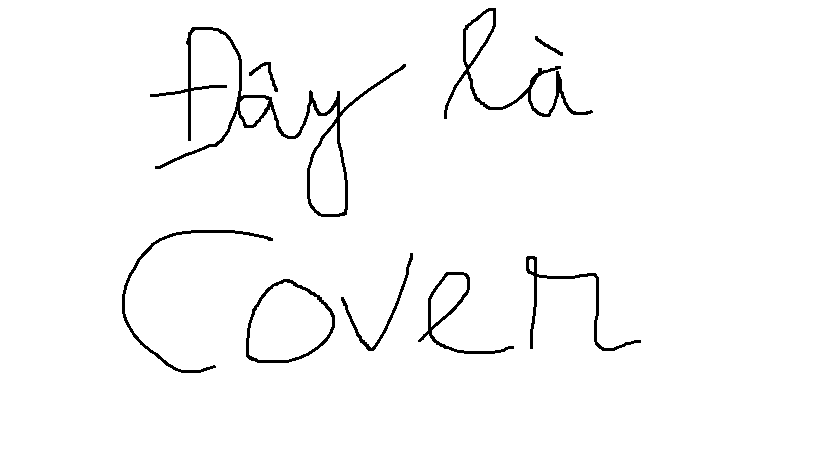 Đây là
Cover